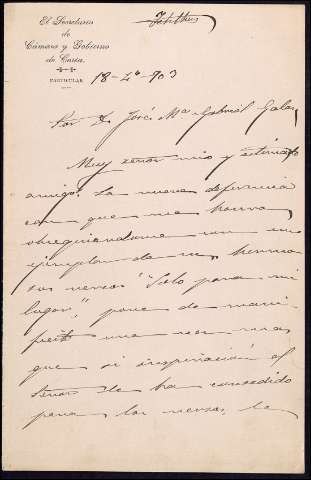 El Secretario
de
Cámara y Gobierno
de Coria.
PARTICULAR
18-4º-903
Sor D. José Mª Gabriel Galan
Muy señor mio y estimado
amigo: La nueva deferencia
con que me honra
obsequiandome con un
ejemplar de sus hermo
sos versos "Solo para mi
lugar", pone de mani
fiesto una vez mas
que si inspiración el
Señor le ha concedido
para los versos, le